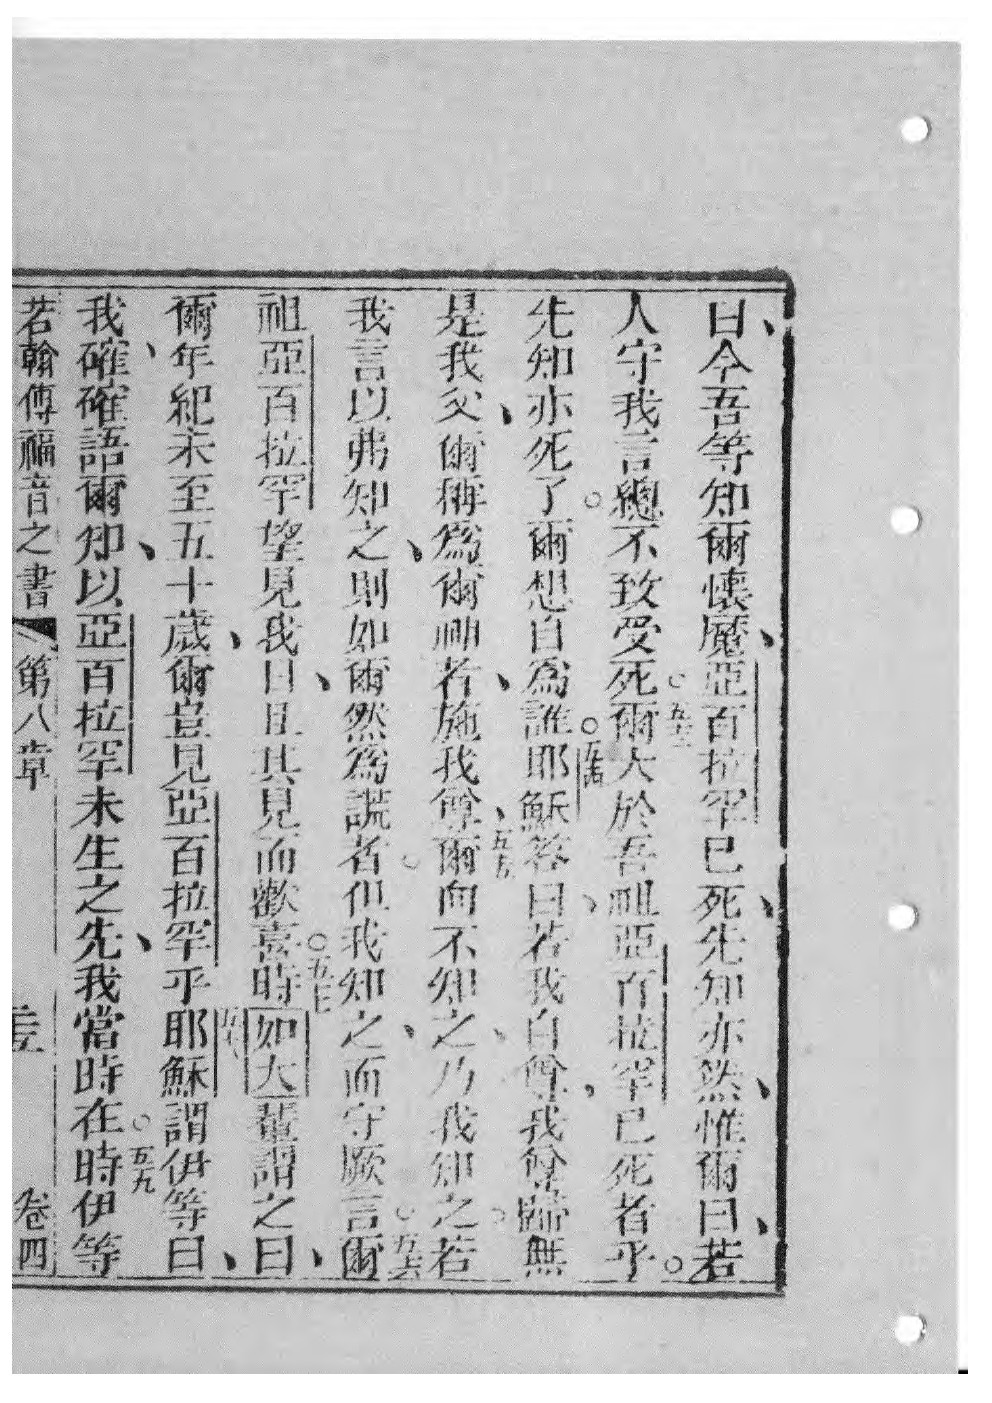 曰、今吾等知爾懷魔、亞百拉罕已死、先知亦然、惟爾曰、若
人守我言總不致受死。五三爾大於吾祖亞百拉罕已死者乎。
先知亦死了。爾想自為誰。五四耶穌答曰、若我自尊、我尊歸無
是我父、爾稱為爾神者、施我尊、五五爾向不知之、乃我知之。若
我言以弗知之、則如爾然為謊者。但我知之、而守厥言。五六爾
祖亞百拉罕望見我日、且其見而歡喜。五七時如大輩謂之曰、
爾年紀未至五十歲、爾豈見亞百拉罕乎。五八耶穌謂伊等曰、
我確、確語爾知、以亞百拉罕未生之先、我當時在。五九時伊等
若翰傳福音之書 第八章 卷四